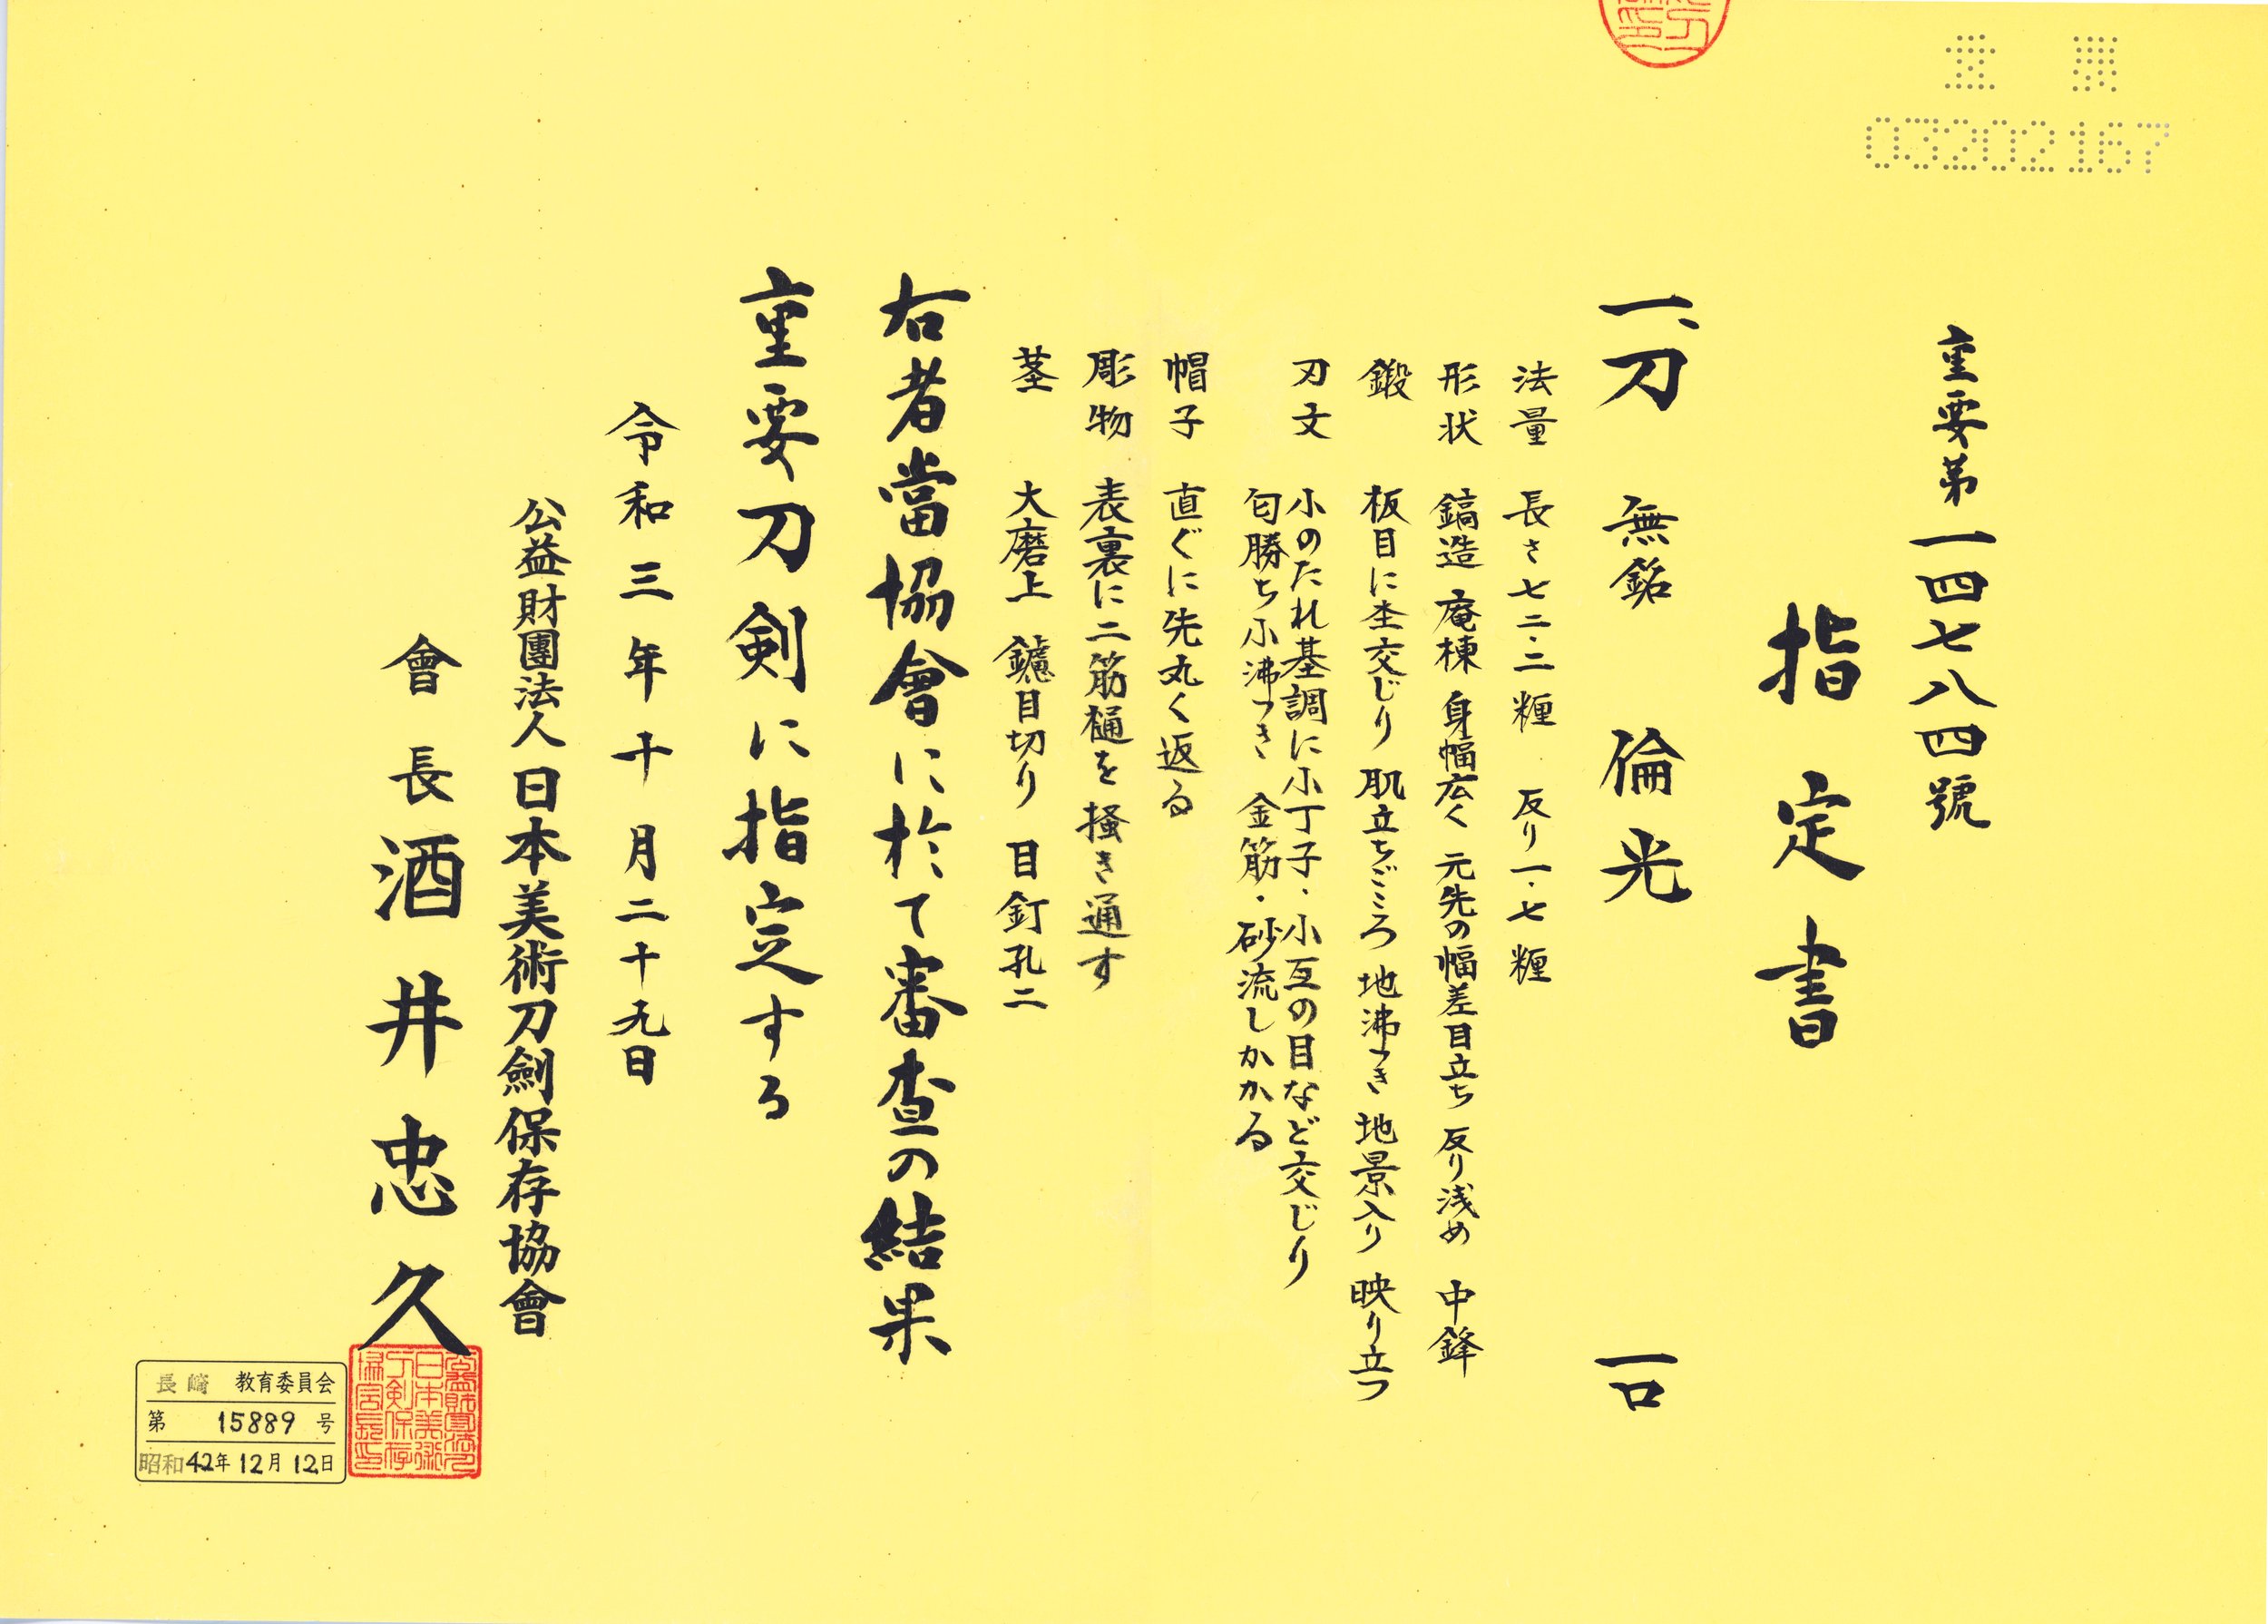 重要
03202167
重要第一四七八四號
指定書
一、刀 無銘 倫光 一口
法量 長さ七二・二糎 反り一・七糎
形状 鎬造 庵棟 身幅広く 元先の幅差目立ち 反り浅め 中鋒
鍛 板目に杢交じり 肌立ちごころ 地沸つき 地景入り 映り立つ
刃文 小のたれ基調に小丁子・小互の目など交じり
匂勝ち小沸つき 金筋・砂流しかかる
帽子 直ぐに先丸く返る
彫物 表裏に二筋樋を掻き通す
茎 大磨上 鑢目切り 目釘孔二
右者當協會に於て審査の結果
重要刀剣に指定する
令和三年十月二十九日
公益財團法人日本美術刀劍保存協會
會長 酒井忠久
長崎 教育委員会
第 15889 号
昭和42年12月12日